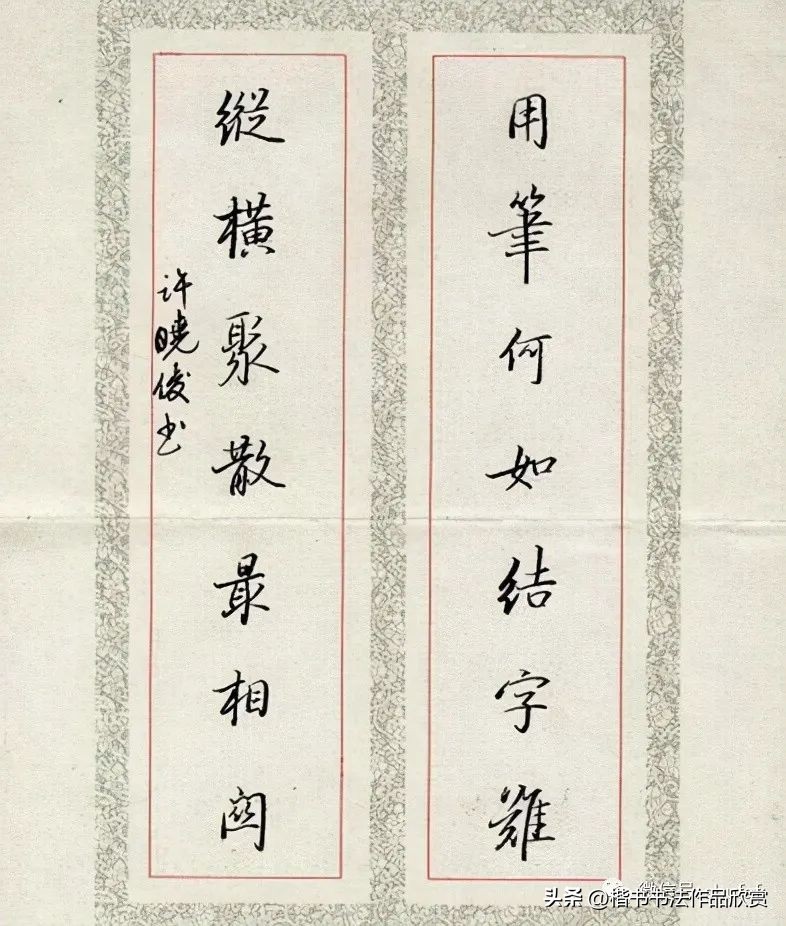 用筆何如結字難
縱橫聚散最相關
许曉俊书
头条 @楷书书法作品欣赏